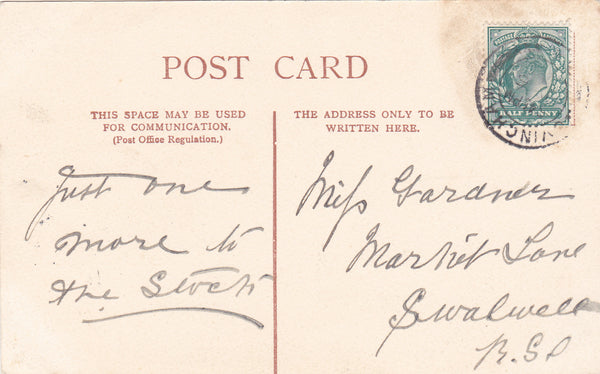 POST CARD
THIS SPACE MAY BE USED
FOR COMMUNICATION.
(Post Office Regulation.)
THE ADDRESS ONLY TO BE
WRITTEN HERE.
POSTAGE
HALF PENNY
Just one
more to
the Stock
Miss Gardner
Market Lane
Swalwell
R.S.O